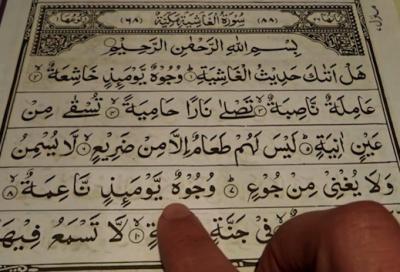 (٨٨) سُوْرَةُ الْغَاشِيَةِ مَكِّيَّةٌ (٦٨)
بِسْمِ اللّٰهِ الرَّحْمٰنِ الرَّحِيْمِ
هَلْ اَتٰىكَ حَدِيْثُ الْغَاشِيَةِ ۝١ وُجُوْهٌ يَّوْمَىِٕذٍ خَاشِعَةٌ ۝٢
عَامِلَةٌ نَّاصِبَةٌ ۝٣ تَصْلٰى نَارًا حَامِيَةً ۝٤ تُسْقٰى مِنْ
عَيْنٍ اٰنِيَةٍ ۝٥ لَيْسَ لَهُمْ طَعَامٌ اِلَّا مِنْ ضَرِيْعٍ ۝٦ لَّا يُسْمِنُ
وَلَا يُغْنِيْ مِنْ جُوْعٍ ۝٧ وُجُوْهٌ يَّوْمَىِٕذٍ نَّاعِمَةٌ ۝٨
فِيْ جَنَّةٍ ۝١٠ لَّا تَسْمَعُ فِيْهَا